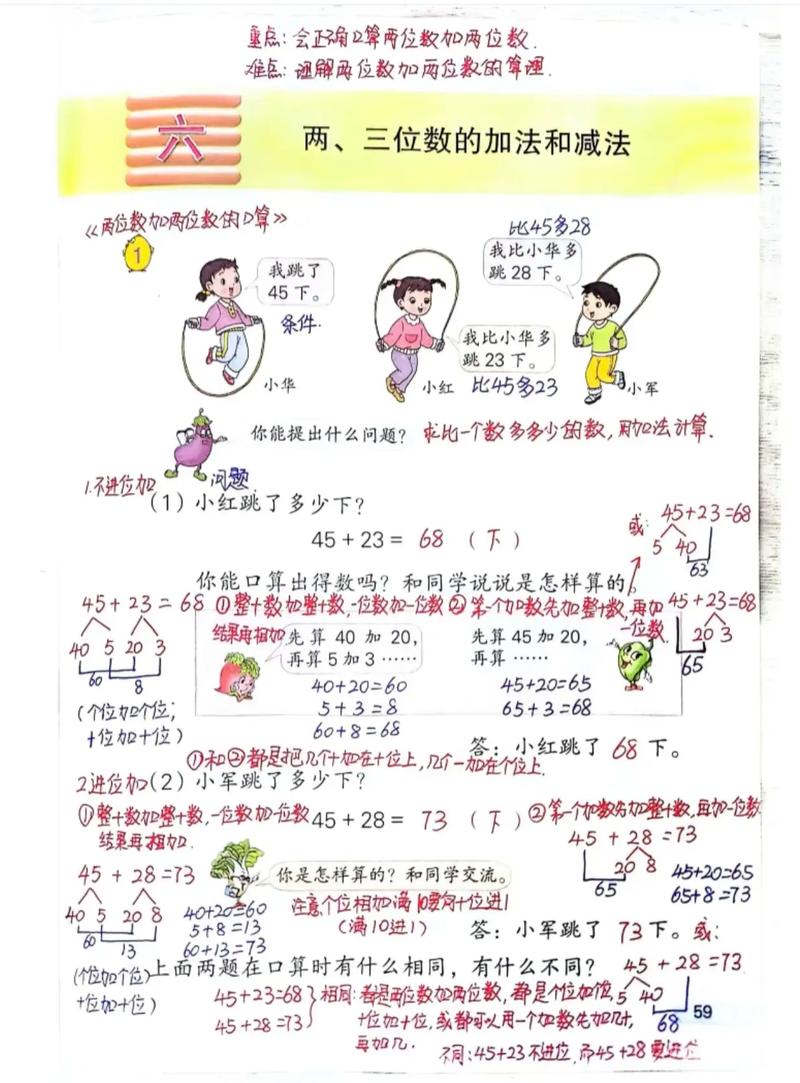 重点：会正确口算两位数加两位数.
难点：理解两位数加两位数的算理.
六
两、三位数的加法和减法
《两位数加两位数的口算》
1
我跳了
45 下。
条件.
小华
我比小华多
跳 23 下。
小红 比45多23
比45多28
我比小华多
跳 28 下。
小军
你能提出什么问题？ 求比一个数多多少的数，用加法计算.
问题
1.不进位加
（1）小红跳了多少下？
45 + 23 = 68 （下）
或:
45+23=68
5 40
63
你能口算出得数吗？和同学说说是怎样算的。
①整十数加整十数,一位数加一位数
结果再相加
②第一个加数先加整十数,再加
一位数.
45+23=68
40 5 20 3
60
8
(个位加个位;
十位加十位)
先算 40 加 20，
再算 5 加 3 ……
40+20=60
5+3=8
60+8=68
先算 45 加 20，
再算 ……
45+20=65
65+3=68
45+23=68
20 3
65
答：小红跳了 68 下。
①和②都是把几个十加在十位上,几个一加在个位上.
2进位加（2）小军跳了多少下？
①整十数加整十数,一位数加一位数
结果再相加.
45 + 28 = 73 （下）
②第一个加数先加整十数,再加一位数
45 + 28 =73
20 8
65
45+20=65
65+8=73
45 + 28 =73
40 5 20 8
60
13
40+20=60
5+8=13
60+13=73
(个位加个位)
十位加十位)
你是怎样算的？和同学交流。
注意个位相加满10要向十位进1
(满10进1)
答：小军跳了 73 下。或:
45 + 28 =73
5 40
68
上面两题在口算时有什么相同，有什么不同？
45+23=68
45+28=73
相同:都是两位数加两位数,都是个位加个位,
十位加十位,或都可以用一个加数先加几十,
再加几.
不同:45+23不进位,而45+28要进位
59